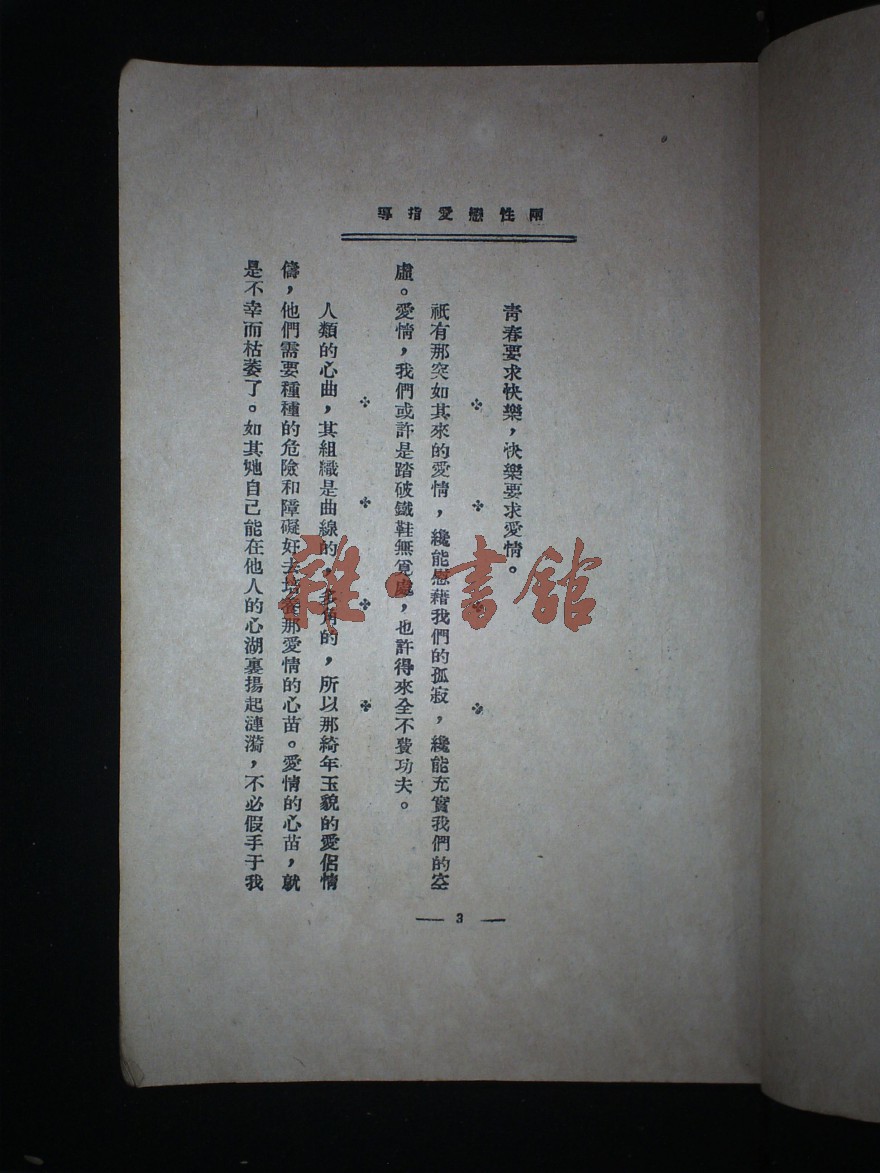 兩性戀愛指導
青春要求快樂，快樂要求愛情。
祇有那突如其來的愛情，纔能慰藉我們的孤寂，纔能充實我們的空
虛。愛情，我們或許是踏破鐵鞋無覓處，也許得來全不費功夫。
人類的心曲，其組織是曲線的，多角的，所以那綺年玉貌的愛侶情
儔，他們需要種種的危險和障礙好去培養那愛情的心苗。愛情的心苗，就
是不幸而枯萎了。如其她自己能在他人的心湖裏揚起漣漪，不必假手于我
— 3 —
雜·書館